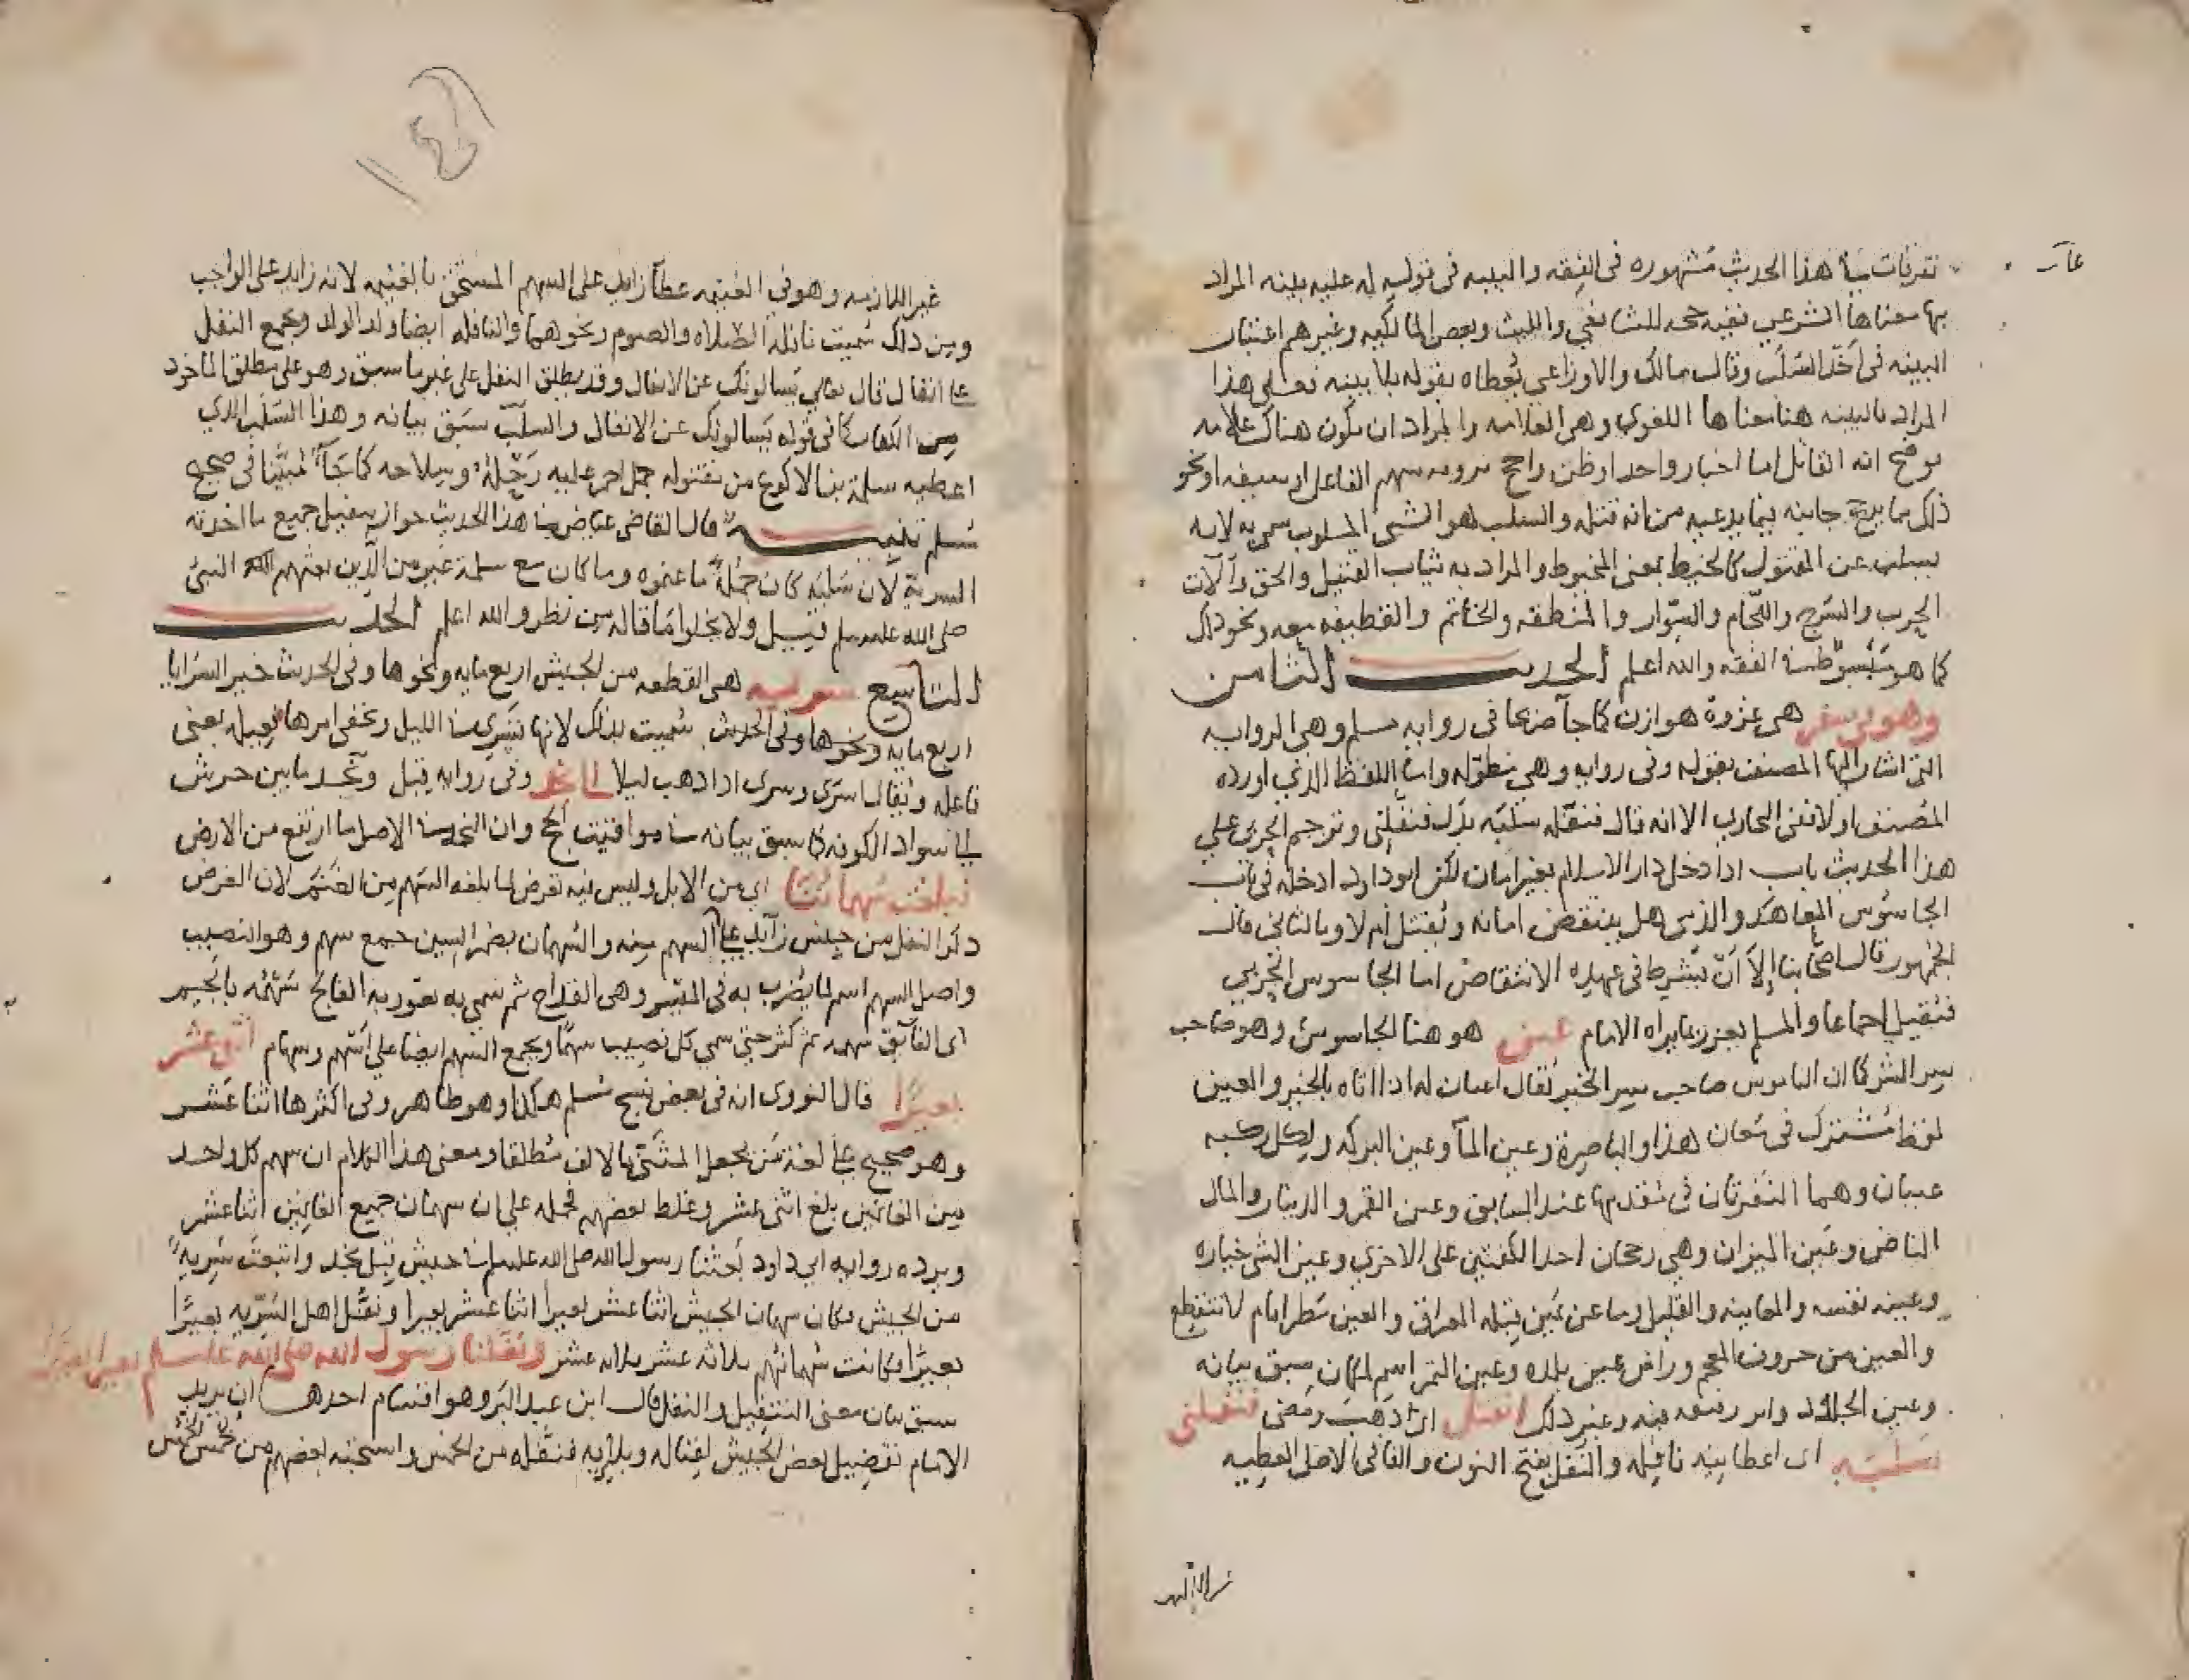 تفريعات هذا الحديث مشهوره فى الفقه والبينه فى قوله له عليه بينه المراد
بها معناها الشرعي ففيه حجه للشافعي والليث وبعض المالكيه وغيرهم اعتبار
البينه فى اخذ السلب وقال مالك والاوزاعى يُعطاه بقوله بلا بينه فعلى هذا
المراد بالبينه هنا معناها اللغوي وهى العلامه والمراد ان يكون هناك علامه
توضح انه القاتل اما اخبار واحد او ظن راجح سهم القاتل او سيفه او نحو
ذلك مما يرجح جانبه فيما يدعيه من انه قتله والسلب هو الشى المسلوب سمي به لانه
يسلب عن المقتول كالخبط بمعنى المخبوط والمراد به ثياب القتيل والخف وآلات
الحرب والسرج واللجام والسوار والمنطقه والخاتم والقطيفه معه ونحو ذلك
كما هو مبسوط فى الفقه والله اعلم الحديث الثامن
وهو في سفر هى غزوة هوازن كما جآ صريحا فى رواية مسلم وهى الرواية
التى اشار اليها المصنف بقوله وفى روايه وهى مطوله واما اللفظ الذي اورده
المصنف اولا ففى البخاري الا انه قال فقتله فنفله سلبه بدل فنفلني وترجم البخاري علي
هذا الحديث باب اذا دخل دار الاسلام بغير امان لكن ابو داود ادخله فى باب
الجاسوس المعاهد والذمي هل ينتقض امانه ويقتل ام لا وبالثانى قال
الجمهور قال اصحابنا إلا أن يشرط فى عهده الانتقاض اما الجاسوس الحربي
فيقتل اجماعا والمسلم يعزر بما يراه الامام عين هو هنا الجاسوس وهو صاحب
سر الشر كما ان الناموس صاحب سر الخير يقال اعتان له اذا اتاه بالخبر والعين
لفظ مشترك فى معان هذا والباصرة وعين المآ وعين البركه ولكل ركبه
عينان وهما النقرتان فى مقدمها عند الساق وعين القمر والدينار والمال
الناض وعين الميزان وهي رجحان احد الكفتين على الاخري وعين الشى خياره
وعينه نفسه والمعاينه والقليل وما عن يمين قبله العراق والعين مطر ايام لا تنقطع
والعين من حروف المعجم وراس عين بلده وعين التمر اسم لمكان سبق بيانه
وعين الجلد وغير ذلك انفتل اى ذهب ومضى فنفلني
سلبه اى اعطانيه نافله والنفل بفتح النون والفا فى الاصل العطيه
غير اللازمه
غير اللازمه وهو في الغنيمه عطآ زايد على السهم المستحق بالغنيمه لانه زايد على الواجب
ومن ذلك سميت نافلة الصلاه والصوم ونحوهما والنافله ايضا ولد الولد ويجمع النفل
على انفال قال تعالى يسالونك عن الانفال وقد يطلق النفل على غير ما سبق وهو على مطلق الماخوذ
من الكفار كما فى قوله يسالونك عن الانفال والسلب سبق بيانه وهذا السلب الذي
اعطيه سلمة بن الاكوع من مقتوله جمل احمر عليه رحله وسلاحه كما جآ مبينا فى صحيح
مسلم تنبيه قال القاضى عياض فى هذا الحديث جواز تنفيل جميع ما اخذته
السرية لان سلبه كان جملة ما غنموه وما كان مع سلمة غيره من الذين بعثهم النبي
صلى الله عليه وسلم قيل ولا يخلوا ما قاله من نظر والله اعلم الحديث
التاسع سرية هى القطعه من الجيش اربع مايه ونحوها وفى الحديث خير السرايا
اربع مايه ونحوها وفى الحديث سميت بذلك لانها تسري فى الليل وتخفى امرها فعيله بمعنى
فاعله ويقال اسرى وسرى اذا ذهب ليلا الى نجد وفى روايه قبل ونجد ما بين جرش
الى سواد الكوفه كما سبق بيانه فى مواقيت الحج وان النجد فى الاصل ما ارتفع من الارض
فبلغت سهماننا اى من الابل وليس فيه تعرض لما بلغه السهم من الغنم لان الغرض
ذكر النفل من جنس زايد على السهم منه والسهمان بضم السين جمع سهم وهو النصيب
واصل السهم اسم لما يضرب به فى الميسر وهى القداح ثم سمي به يفوز به الفالج سهمه بالجيم
اى الفائق سهمه ثم كثر حتى سمي كل نصيب سهما ويجمع السهم ايضا على اسهم وسهام اثنى عشر
بعيرًا قال النووى انه فى بعض نسخ مسلم هكذا وهو ظاهر وفى اكثرها اثنا عشر
وهو صحيح على لغة من يجعل المثنى بالالف مطلقا ومعنى هذا الكلام ان سهم كل واحد
من الغانمين بلغ اثنى عشر وغلط بعضهم فحمله على ان سهمان جميع الغانمين اثنا عشر
ويرده رواية ابى داود بعثنا رسول الله صلى الله عليه وسلم فى جيش قبل نجد وانبعثت سرية
من الجيش فكان سهمان الجيش اثنا عشر بعيرا اثنا عشر بعيرا ونفل اهل السرية بعيرًا
بعيرًا فكانت سهمانهم ثلاثه عشر ثلاثه عشر ونفلنا رسول الله صلى الله عليه وسلم بعيرا بعيرا
سبق بيان معنى التنفيل والنفل قال ابن عبد البر وهو اقسام احدها ان يريد
الامام تفضيل بعض الجيش لغنائه وبلائه فنفله من الخمس واستحبه بعضهم من خمس الخمس